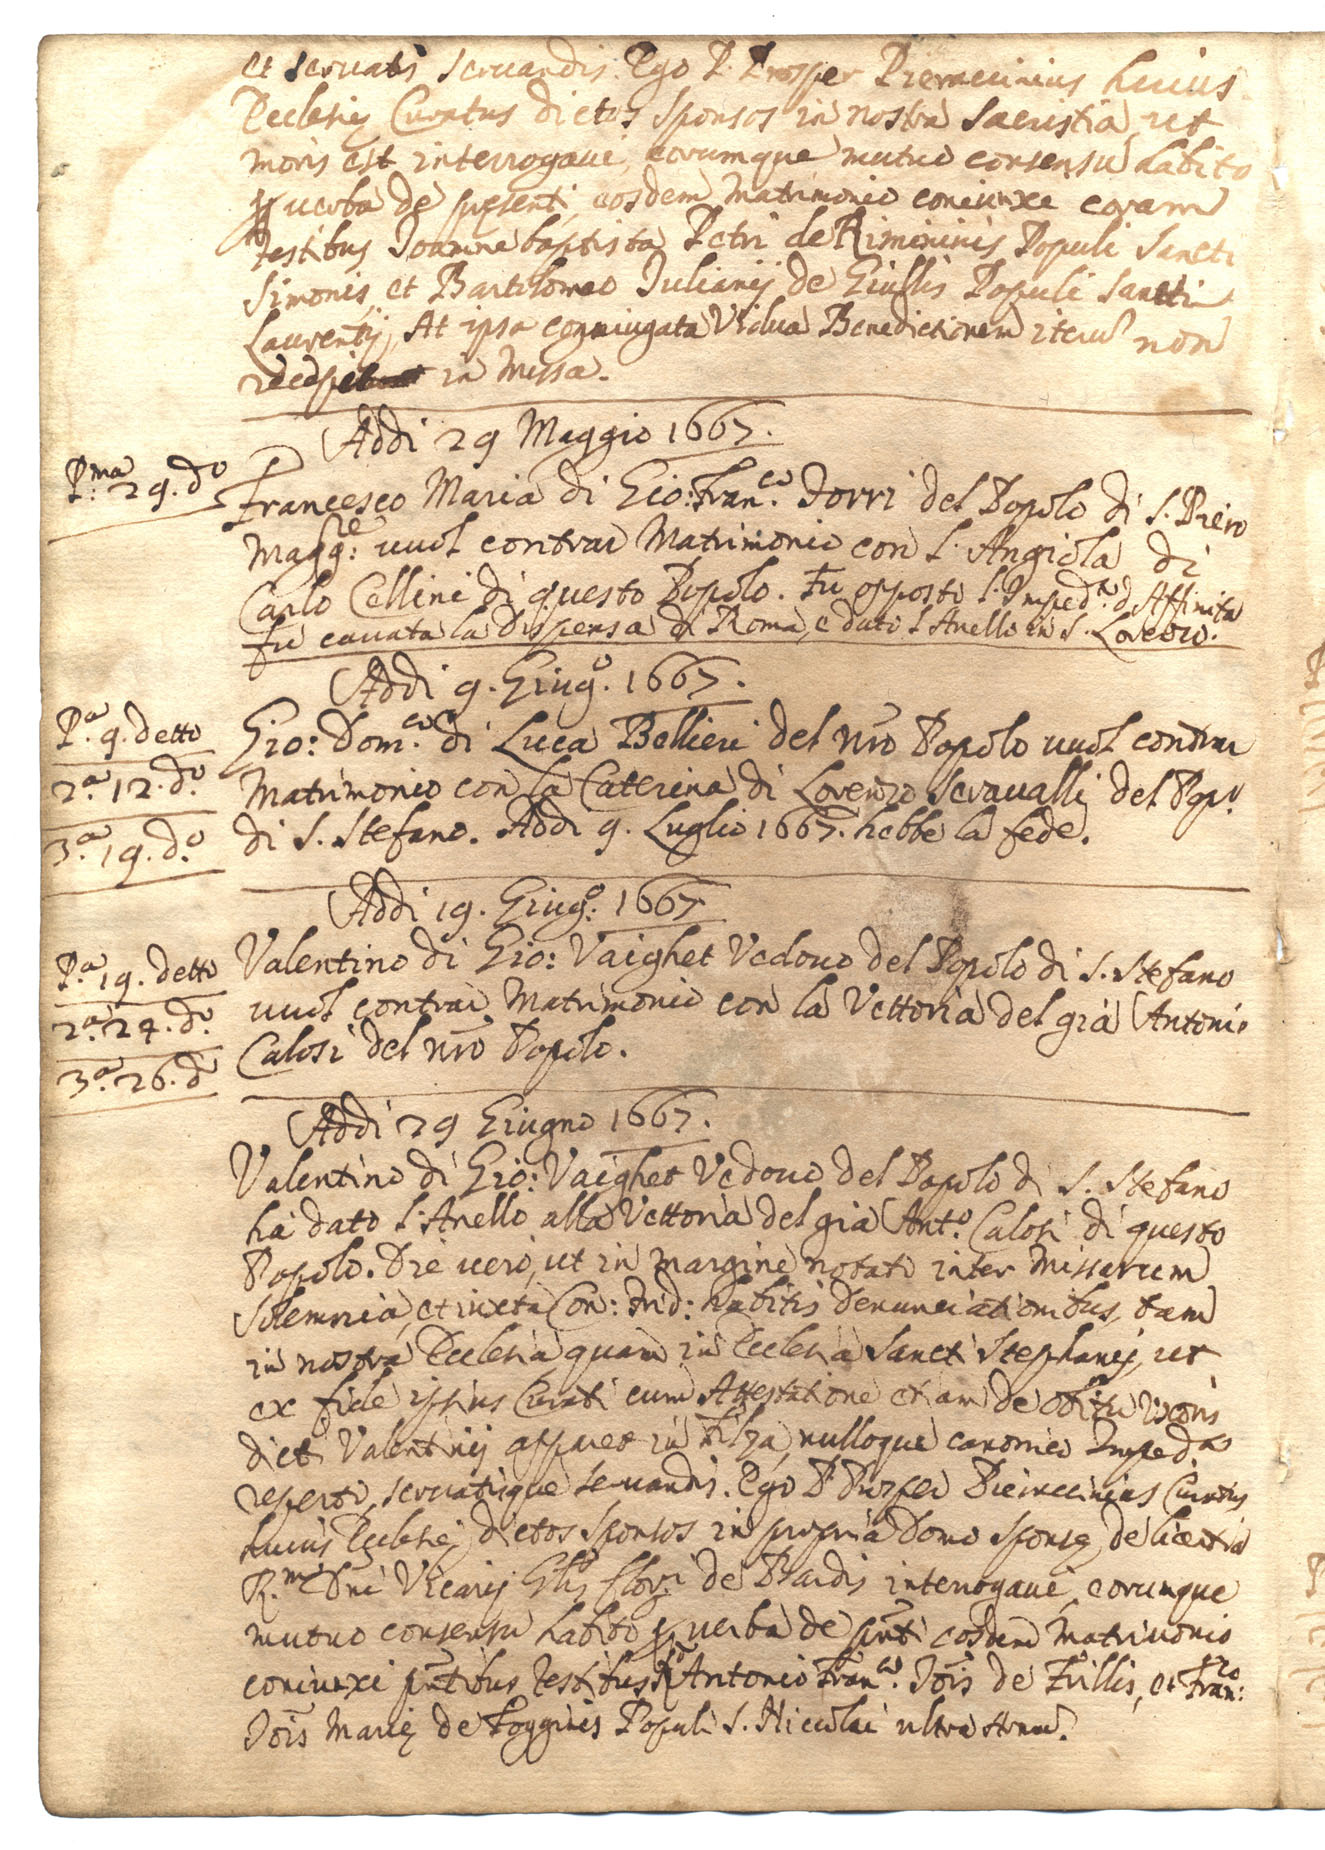 et servatis servandis. Ego P. Prosper Pierucinius huius
Ecclesię Curatus dictos sponsos in nostra Sacristia, ut
moris est interrogaui, eorumque mutuo consensu habito
ꝑ uerba de pręsenti, eosdem Matrimonio coniunxi coram
Testibus Joanne baptista Petri de Rimininis Populi Sancti
Simonis, et Bartolomeo Julianij de Giullis Populi Sancti
Laurentij, At ipsa coniugata Vidua Benedictionem iterũ non
in Missa.
Addi 29 Maggio 1667.
P.ma 29. d.o
Francesco Maria di Gio: Fran.co Torri del Popolo di S. Piero
Magg.re: uuol contrar Matrimonio con l'Angiola di
Carlo Cellini di questo Popolo. Fu opposto l'Imped.to d'Affinità
fu cauata la Dispensa di Roma, e dato l'Anello in S. Lorenzo.
Addi 9. Giug.o 1667.
P.a 9. detto
2.a 12. d.o
3.a 19. d.o
Gio: Dom.co di Luca Bellieri del nro Popolo uuol contrar
Matrimonio con la Caterina di Lorenzo Seraualli del Pop.o
di S. Stefano. Addi 9. Luglio 1667. hebbe la fede.
Addi 19. Giug.o: 1667
P.a 19. detto
2.a 24. d.o
3.a 26. d.o
Valentino di Gio: Vaighet Vedouo del Popolo di S. Stefano
uuol contrar Matrimonio con la Vettoria del già Antonio
Calosi del nro Popolo.
Addi 29 Giugno 1667.
Valentino di Gio: Vaighet Vedouo del Popolo di S. Stefano
hà dato l'Anello alla Vettoria del già Ant.o Calosi di questo
Popolo. Die uero, ut in margine notati inter Missarum
Solemnia, et iuxta Con: Trid: habitis denunciationibus, tam
in nostra Ecclesia quam in Ecclesia Sancti Stephanij, ut
ex fide ipsius Curati cum Attestatione etiam de obitu uxoris
dicti Valentinij apparet in filza, nulloque canonico Imped.to
reperto, seruatisque seruandis. Ego P. Prosper Pieruccinius Curatus
huius Ecclesię, dictos sponsos in propria Domo sponsę, de licentia
R.mi Dni Vicarij Glis Flor.ni de Bardis interrogaui, eorumque
mutuo consensu habito ꝑ uerba de pñti eosdem Matrimonio
coniunxi pñtibus Testibus R.do Antonio Fran.co Jois de Zillis, et Fran.co:
Jois Marię de Pogginis Populi S. Niccolai ultra Arnũ.